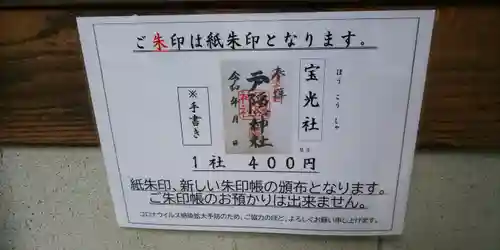 ご朱印は紙朱印となります。
宝光社
ほうこうしゃ
奉拝
戸隠神社
令和 年 月 日
※手書き
1社 400円
紙朱印、新しい朱印帳の頒布となります。
ご朱印帳のお預かりは出来ません。
コロナウイルス感染拡大予防のため、ご協力のほど、よろしくお願い申し上げます。